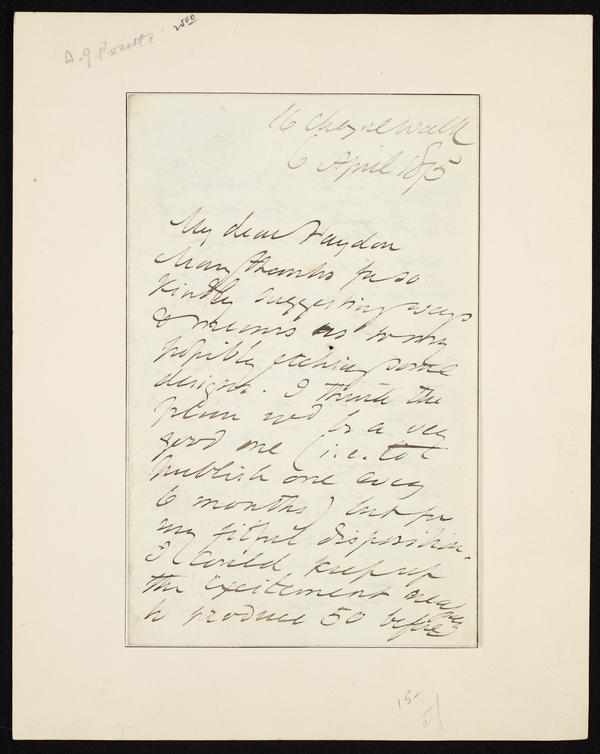 D. G. Rossetti 2500
16 Cheyne Walk
6 April 1875
My dear Haydon
Many thanks for so
kindly suggesting ways
& means as to my
possibly etching some
designs. I think the
plan wd be a very
good one (i.e. to
publish one every
6 months) but for
my fitful disposition.
I could keep up
the excitement
to produce 50 before
15-